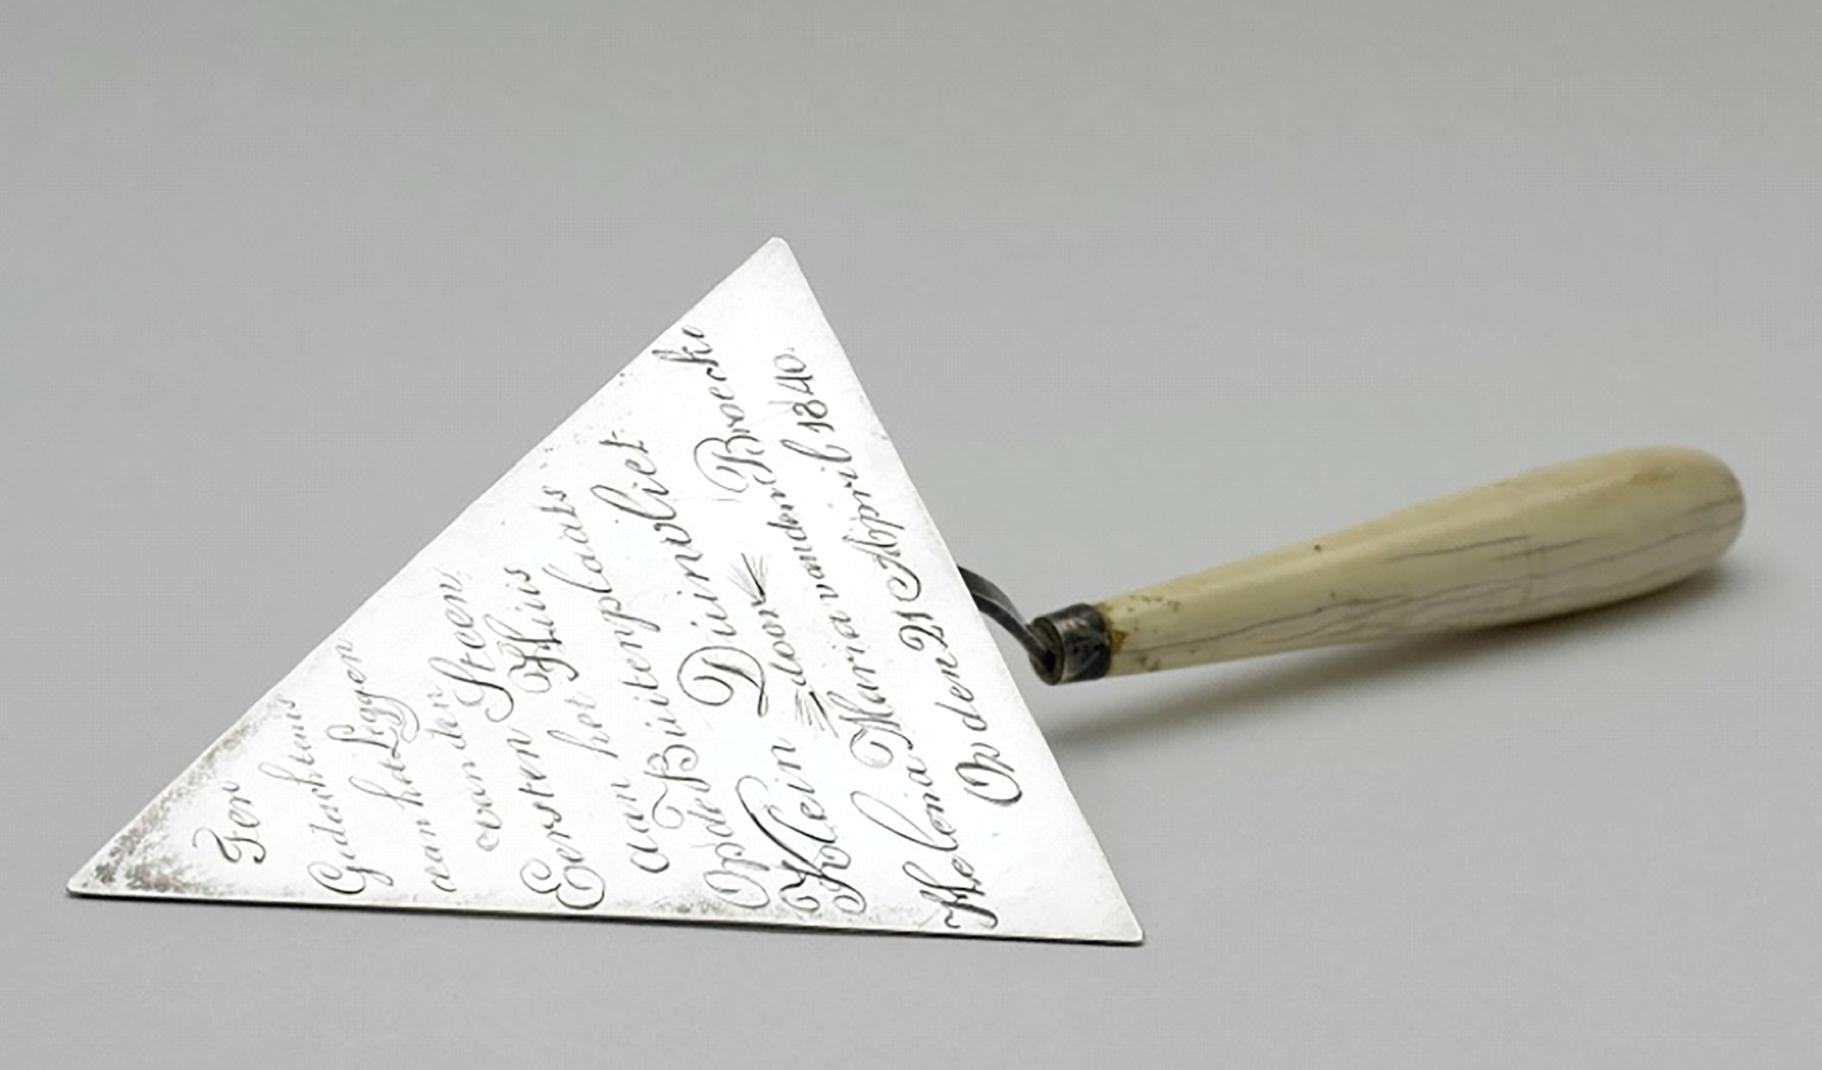 Ter
Gedachtenis
aan het Leggen
van den Steen
Eersten Huis
aan het plaats
Op de Buitenplaats
Klein Duinvliet
door
Helena Maria van den Broecke
Op den 21 April 1840.